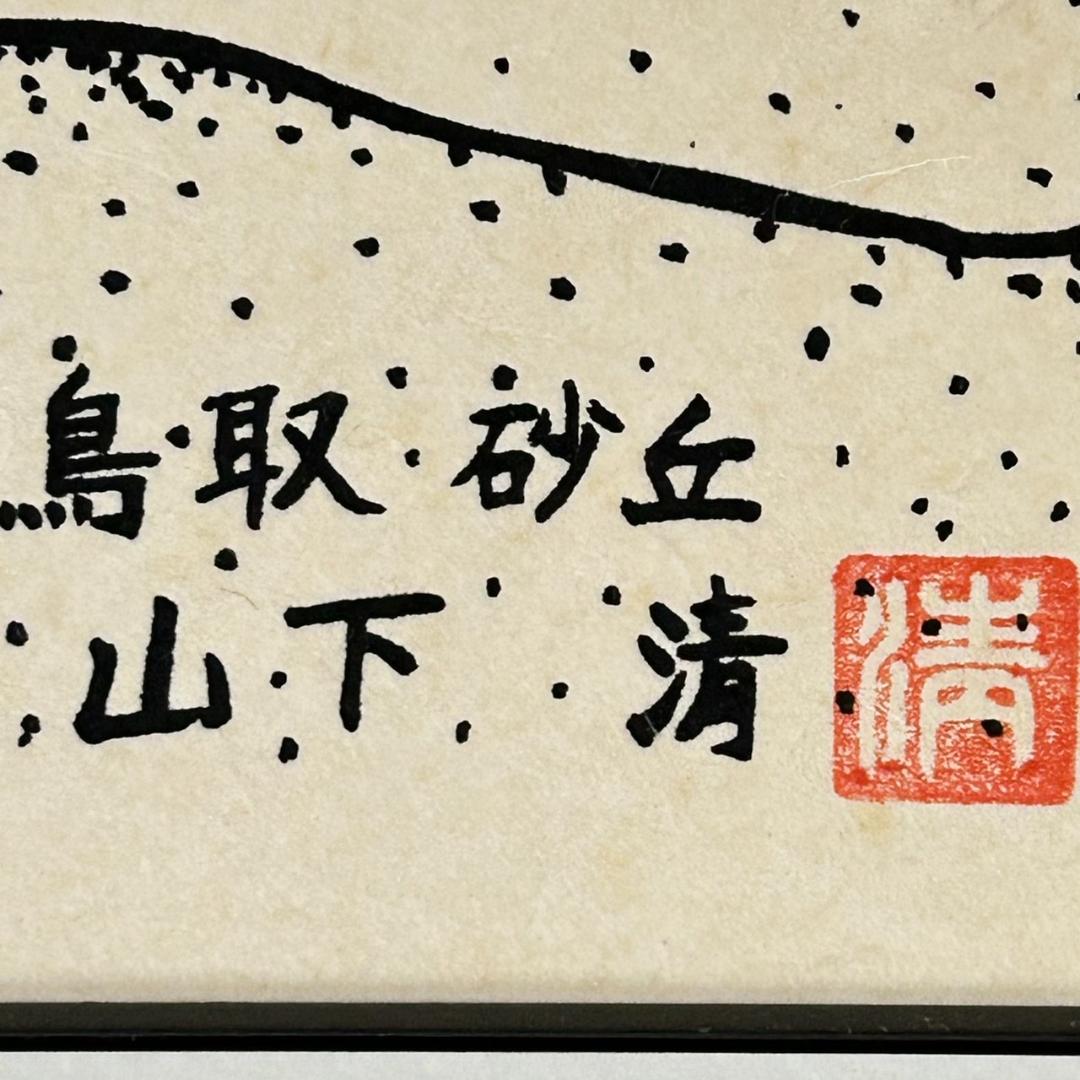 鳥取砂丘
山下 清
清